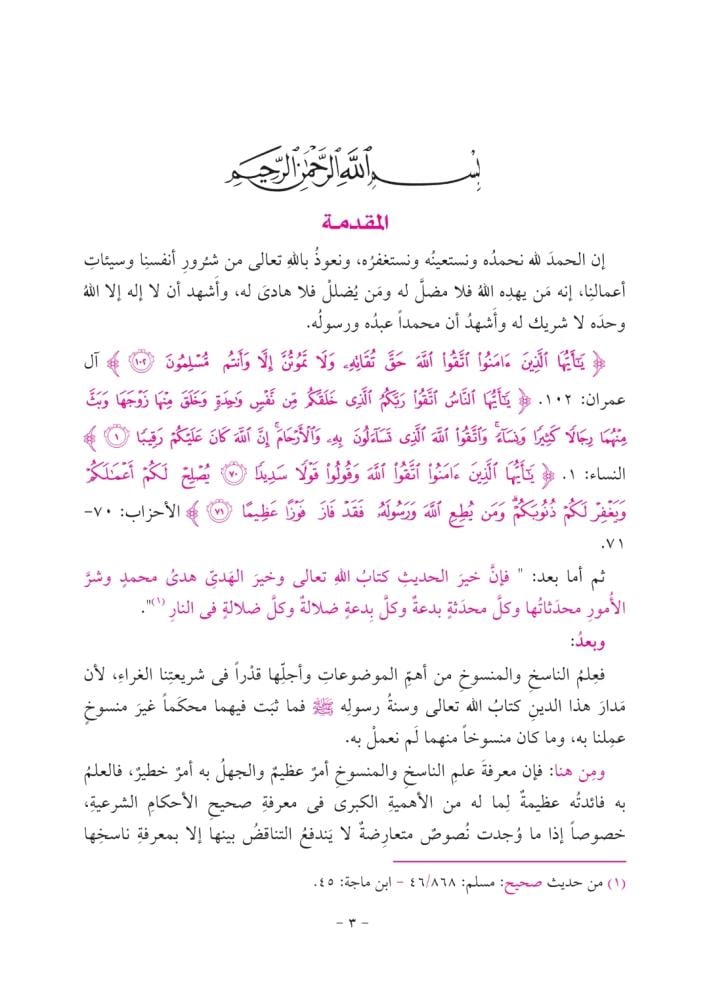 بِسْمِ ٱللَّهِ ٱلرَّحْمَٰنِ ٱلرَّحِيمِ
المقدمة
إن الحمدَ لله نحمدُه ونستعينُه ونستغفرُه، ونعوذُ باللهِ تعالى من شرُورِ أنفسنِا وسيئاتِ
أعمالنِا، إنه مَن يهدِه اللهُ فلا مضلَّ له ومَن يُضللْ فلا هادىَ له، وأَشهد أن لا إله إلا اللهُ
وحدَه لا شريك له وأَشهدُ أن محمداً عبدُه ورسولُه.
﴿ يَٰٓأَيُّهَا ٱلَّذِينَ ءَامَنُوا۟ ٱتَّقُوا۟ ٱللَّهَ حَقَّ تُقَاتِهِۦ وَلَا تَمُوتُنَّ إِلَّا وَأَنتُم مُّسْلِمُونَ ١٠٢ ﴾ آل
عمران: ١٠٢. ﴿ يَٰٓأَيُّهَا ٱلنَّاسُ ٱتَّقُوا۟ رَبَّكُمُ ٱلَّذِى خَلَقَكُم مِّن نَّفْسٍ وَٰحِدَةٍ وَخَلَقَ مِنْهَا زَوْجَهَا وَبَثَّ
مِنْهُمَا رِجَالًا كَثِيرًا وَنِسَآءً ۚ وَٱتَّقُوا۟ ٱللَّهَ ٱلَّذِى تَسَآءَلُونَ بِهِۦ وَٱلْأَرْحَامَ ۚ إِنَّ ٱللَّهَ كَانَ عَلَيْكُمْ رَقِيبًا ١ ﴾
النساء: ١. ﴿ يَٰٓأَيُّهَا ٱلَّذِينَ ءَامَنُوا۟ ٱتَّقُوا۟ ٱللَّهَ وَقُولُوا۟ قَوْلًا سَدِيدًا ٧٠ يُصْلِحْ لَكُمْ أَعْمَٰلَكُمْ
وَيَغْفِرْ لَكُمْ ذُنُوبَكُمْ ۗ وَمَن يُطِعِ ٱللَّهَ وَرَسُولَهُۥ فَقَدْ فَازَ فَوْزًا عَظِيمًا ٧١ ﴾ الأحزاب: ٧٠–
٧١.
ثم أما بعد: " فإنَّ خيرَ الحديثِ كتابُ اللهِ تعالى وخيرَ الهَدىِّ هدىُ محمدٍ وشرَّ
الأُمورِ محدَثاتُها وكلَّ محدَثةٍ بدعةٌ وكلَّ بِدعةٍ ضلالةٌ وكلَّ ضلالةٍ فى النارِ (١)".
وبعدُ:
فعِلمُ الناسخِ والمنسوخِ من أهمِّ الموضوعاتِ وأجلِّها قدْراً فى شريعتِنا الغراءِ، لأن
مَدارَ هذا الدينِ كتابُ الله تعالى وسنةُ رسولِه ﷺ فما ثبَت فيهما محكَماً غيرَ منسوخٍ
عمِلنا به، وما كان منسوخاً منهما لَم نعملْ به.
ومِن هنا: فإن معرفةَ علمِ الناسخِ والمنسوخِ أمرٌ عظيمٌ والجهلُ به أمرٌ خطيرٌ، فالعلمُ
به فائدتُه عظيمةٌ لِما له من الأهميةِ الكبرى فى معرفةِ صحيحِ الأحكامِ الشرعيةِ،
خصوصاً إذا ما وُجدت نُصوصٌ متعارِضةٌ لا يَندفعُ التناقضُ بينها إلا بمعرفةِ ناسخِها
(١) من حديث صحيح: مسلم: ٤٦/٨٦٨ – ابن ماجة: ٤٥.
– ٣ –